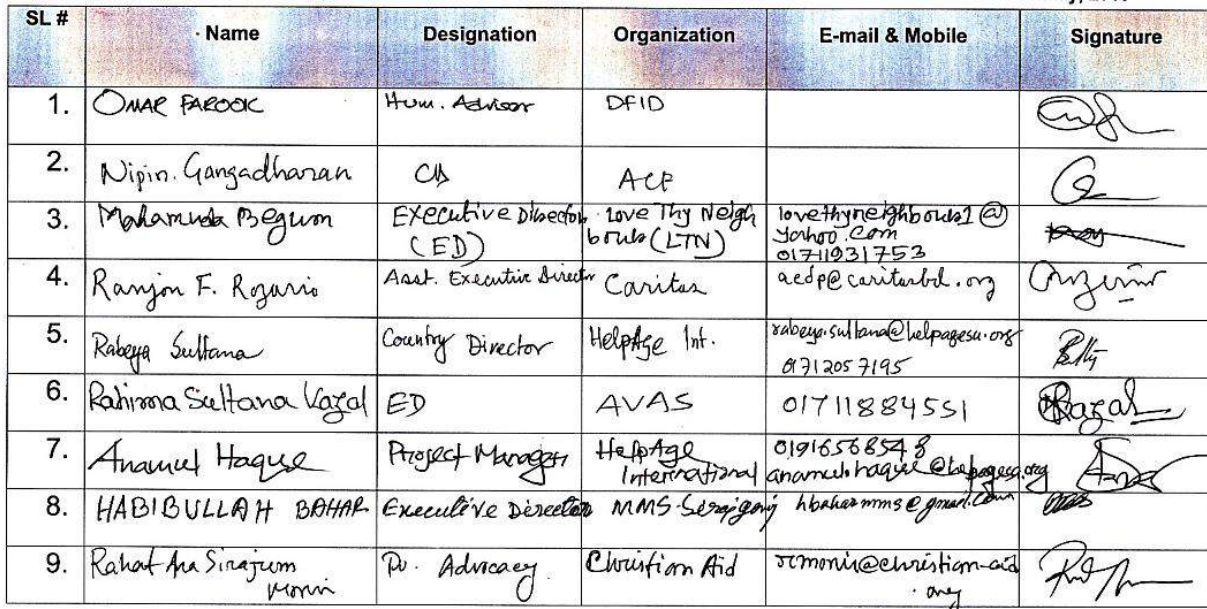 SL # Name Designation Organization E-mail & Mobile Signature
1. OMAR FAROOK Hum. Advisor DFID
2. Nipin. Gangadharan CD ACF
3. Mahamuda Begum Executive Director Love Thy Neigh lovethyneighbours1@
(ED) bours (LTN) yahoo.com
01711931753
4. Ranjon F. Rozario Asst. Executive Director Caritas aedp@caritasbd.org
5. Rabeya Sultana Country Director HelpAge Int. rabeya.sultana@helpagesa.org
01712057195
6. Rahima Sultana Kazal ED AVAS 01711884551 Kazal
7. Anamul Haque Project Manager HelpAge 01916568548
International anamul.haque@helpagesa.org
8. HABIBULLAH BAHAR Executive Director MMS-Serajgonj hbaharmms@gmail.com
9. Rahat Ara Sirajum Advocacy Christian Aid rcmonir@christian-aid
Monir .org